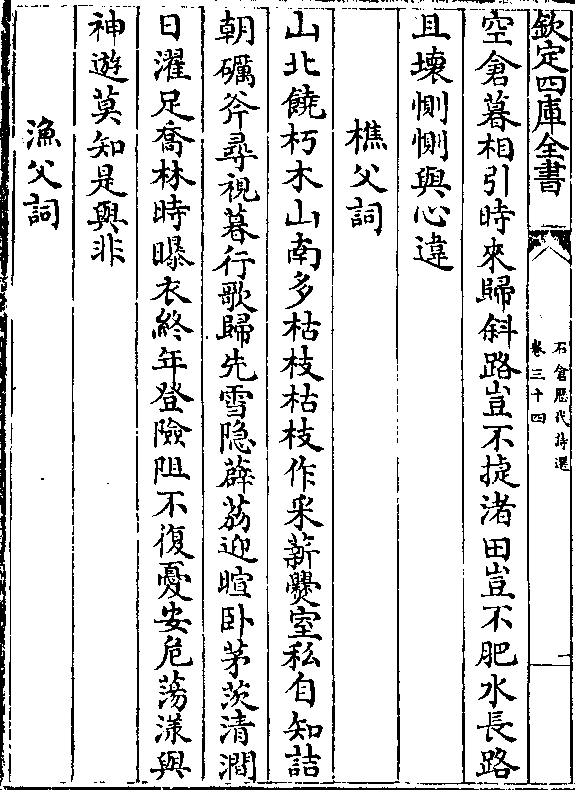 欽定四庫全書
石倉歷代詩選
卷三十四
空倉暮相引時來歸斜路豈不捷渚田豈不肥水長路
且壞惻惻與心違
樵父詞
山北饒朽木山南多枯枝枯枝作采薪爨室私自知詰
朝礪斧尋視暮行歌歸先雪隐薜荔迎暄卧茅茨清澗
日濯足喬林時曝衣終年登險阻不復憂安危蕩漾與
神遊莫知是與非
漁父詞